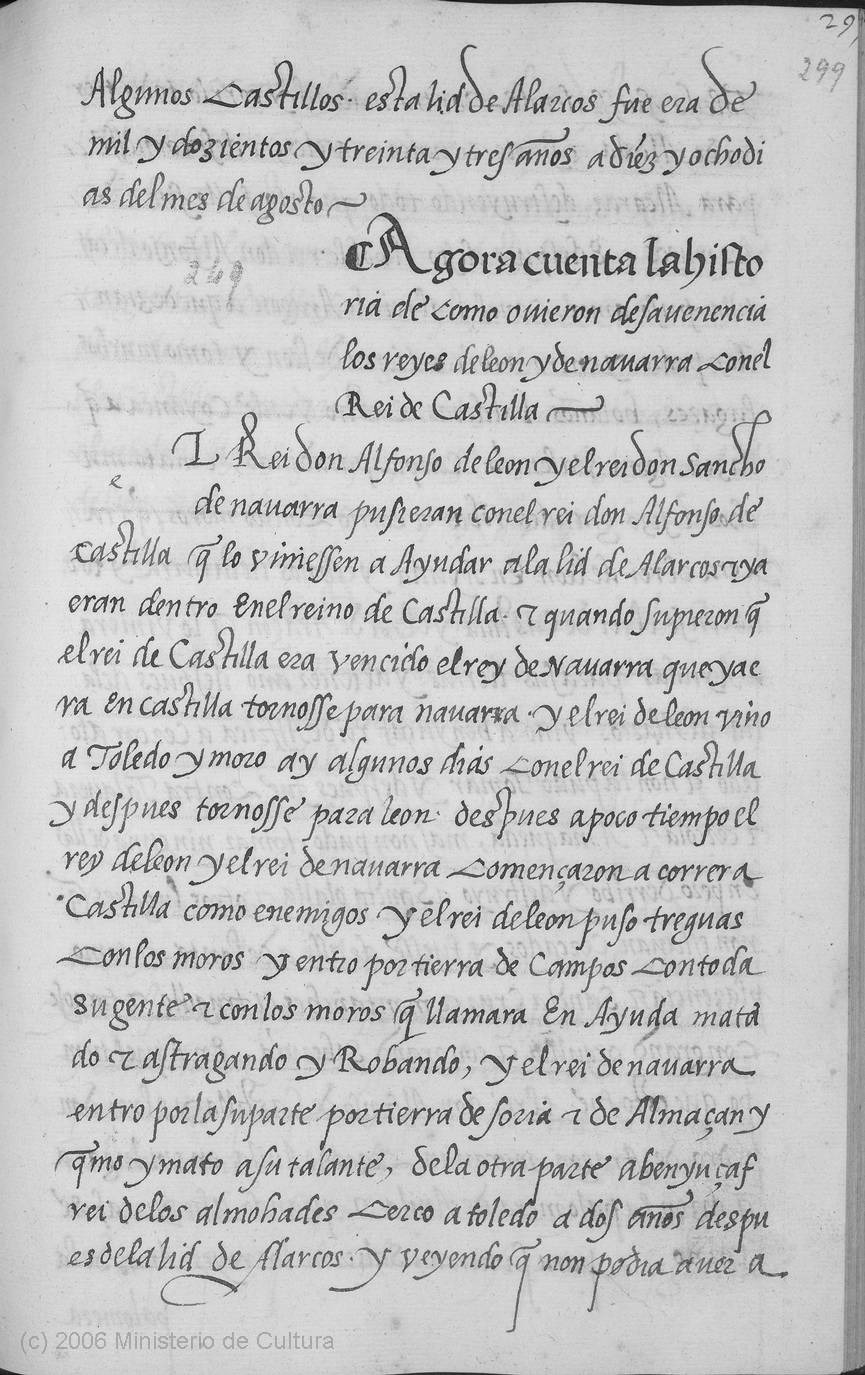 29
299
Algunos Castillos· esta lid de Alarcos fue era de
mil y dozientos y treinta y tres años a diez y ocho di
as del mes de agosto
249
Agora cuenta la histo
ria de como ovieron desavenencia
los reyes de leon y de navarra Con el
Rei de Castilla
L Rei don Alfonso de leon y el rei don Sancho
e
de navarra pusieran con el rei don Alfonso de
Castilla q̃ lo viniessen a Ayudar a la lid de Alarcos ⁊ ya
eran dentro En el reino de Castilla· ⁊ quando supieron q̃
el rei de Castilla era vencido el rey de Navarra que ya e
ra En castilla tornosse para navarra· y el rei de leon vino
a Toledo y moro ay algunos dias Con el rei de Castilla
y despues tornosse para leon· despues a poco tiempo el
rey de leon y el rei de navarra Començaron a correr a
Castilla como enemigos y el rei de leon puso treguas
Con los moros y entro por tierra de Campos Con toda
su gente ⁊ con los moros q̃ llamara En Ayuda matã
do ⁊ astragando y Robando, y el rei de navarra
entro por la su parte por tierra de soria ⁊ de Almaçan y
q̃mo y mato a su talante, de la otra parte abenyuçaf
rei de los almohades Cerco a toledo a dos años despu
es de la lid de Alarcos· y veyendo q̃ non podia aver a
(c) 2006 Ministerio de Cultura